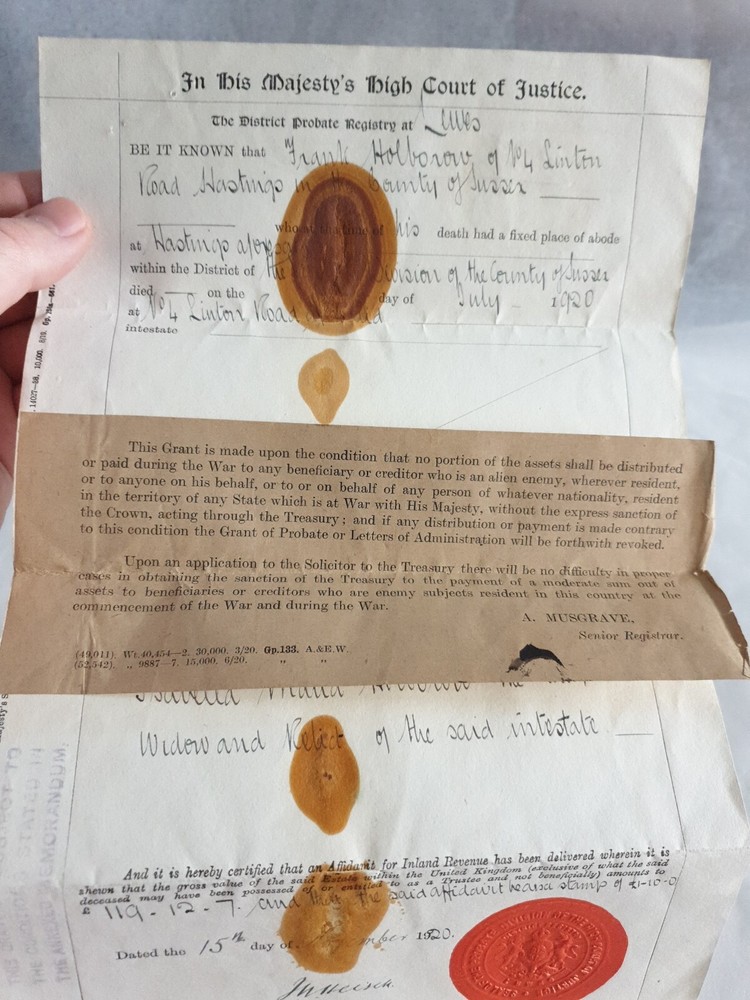 In His Majesty's High Court of Justice.
The District Probate Registry at Lewes
BE IT KNOWN that Frank Holborow of No 4 Linton
Road Hastings in the County of Sussex
who at the time of his death had a fixed place of abode
at Hastings
within the District of the Division of the County of Sussex
died on the day of July 1920
at No 4 Linton Road
intestate
This Grant is made upon the condition that no portion of the assets shall be distributed
or paid during the War to any beneficiary or creditor who is an alien enemy, wherever resident,
or to anyone on his behalf, or to or on behalf of any person of whatever nationality, resident
in the territory of any State which is at War with His Majesty, without the express sanction of
the Crown, acting through the Treasury; and if any distribution or payment is made contrary
to this condition the Grant of Probate or Letters of Administration will be forthwith revoked.
Upon an application to the Solicitor to the Treasury there will be no difficulty in proper
cases in obtaining the sanction of the Treasury to the payment of a moderate sum out of
assets to beneficiaries or creditors who are enemy subjects resident in this country at the
commencement of the War and during the War.
A. MUSGRAVE,
Senior Registrar.
(49,011). Wt. 40,454—2. 30,000. 3/20. Gp. 133. A.&E.W.
(52,542). „ 9887—7. 15,000. 6/20. „ „
Widow and Relict of the said intestate
And it is hereby certified that an Affidavit for Inland Revenue has been delivered wherein it is
shewn that the gross value of the said Estate within the United Kingdom (exclusive of what the said
deceased may have been possessed of or entitled to as a Trustee and not beneficially) amounts to
£ 119-12-7. and that the said affidavit bears a stamp of £1-10-0
Dated the 15th day of 1920.